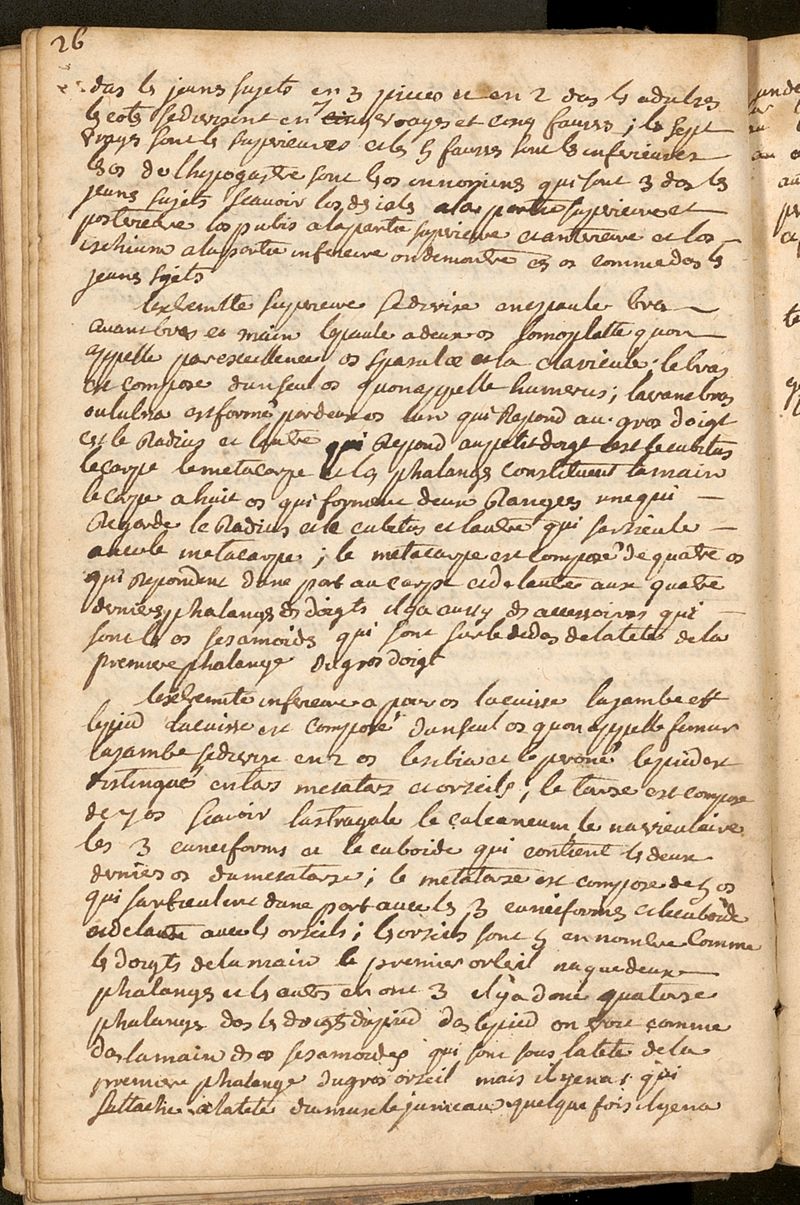 26
das les jeunes sujets en 3 pieces et en 2 das les adultes
les cotes se divisent en 7 vrayes et cinq fausses ; les sept
vrayes sont les superieures et les 5 fausses sont les inferieures
les os de l'hypogastre sont les os innomines qui sont 3 das les
jeunes sujets scavoir los des iles a la partie superieure et
posterieure los pubis a la partie superieure et anterieure et los
ischium a la partie inferieure on demontre ces os comme das les
jeunes sujets
lextremite superieure se divise en espaule bras
avant bras et main lepaule a deux os lomoplatte quon
appelle par excellence os spatulae et la clavicule ; le bras
est compose dun seul os quon appelle humerus ; lavant bras
ou lulna est formé par deux os lun qui repond au gros doigt
est le Radius et lautre qui repond au petit doigt est le cubitus
le carpe le metacarpe et les phalanges constituent la main
le carpe a huit os qui forment deux Rangees une qui
Regarde le Radius et le cubitus et lautre qui sarticule
avec le metacarpe ; le metacarpe est composé de quatre os
qui repondent dune part au carpe et de lautre aux quatre
dernieres phalanges des doigts il y a aussy des accessoires qui
sont les os sesamoides qui sont sur le dedas de la tete de la
premiere phalange du gros doigt
lextremite inferieure a pour os la cuisse la jambe et
le pied la cuisse est composé dun seul os quon appelle femur
la jambe se divise en 2 os le tibia et le peroné le pied est
distingué en tars metatars et orteils ; le tarse est compose
de 7 os scavoir lastragale le calcaneum, le naviculaire
les 3 cuneiforms et le cuboide qui contient les deux
derniers os du metatarse ; le metatarse est compose de 5 os
qui sarticulent dune part avec les 3 cuneiformes et le cuboide
et de lautre avec les orteils ; les orteils sont 5 en nombre comme
les doigts de la main le premier orteil na que deux
phalanges et les autres en ont 3 il y a donc quatorse
phalanges das les doigts du pied das le pied on voit comme
das la main des os sesamoides qui sont sous la tete de la
premiere phalange du gros orteil mais il y en a 1 qui
sattache a la tete du muscle jumeau quelque fois il y en a